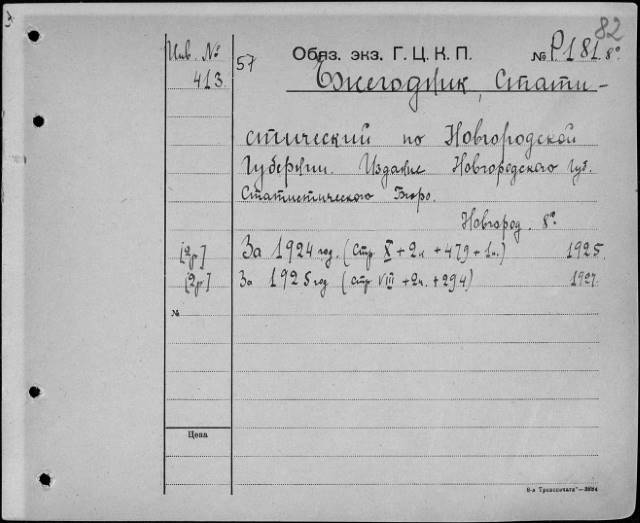 82
Инв. № 57 Обяз. экз. Г. Ц. К. П. № Р.181. 8°
413. Ежегодник, Стати-
стический по Новгородской
Губернии. Издание Новгородского Губ.
Статистического Бюро.
Новгород. 8°.
[2р] За 1924 год. (стр X + 2н. + 479 + 1н.) 1925.
[2р] За 1925 год (стр VIII + 2н. + 294) 1927.
№
Цена